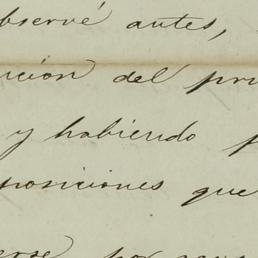 observé antes,
ición del pri
y habiendo p
posiciones que
erse por